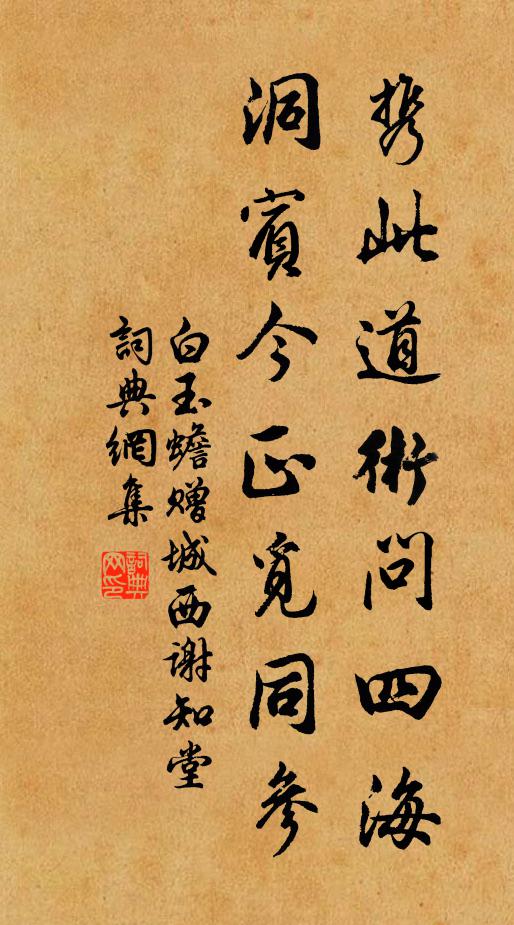 携此道術問四海
洞賓今正覓同參
白玉蟾贈城西谢知堂
詞典網集
詞典網印